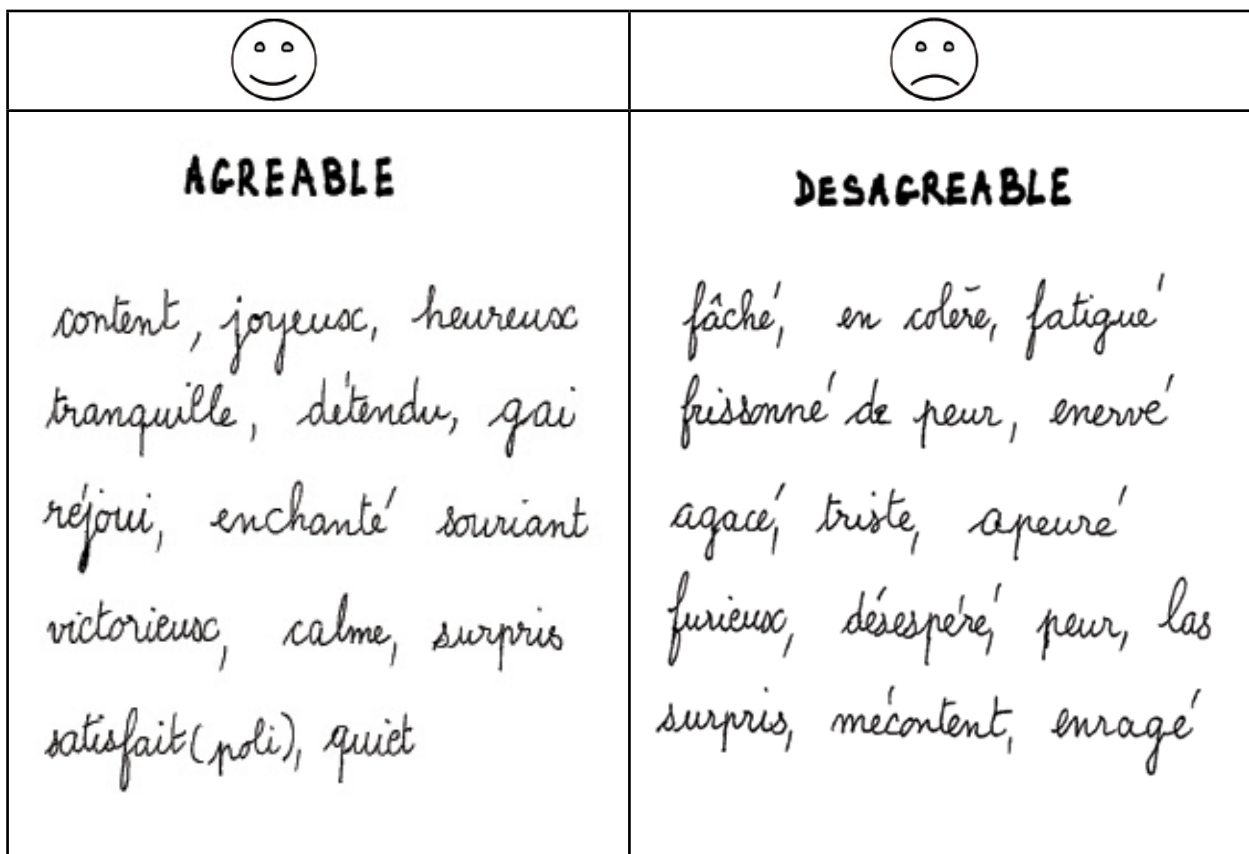 AGREABLE
content, joyeux, heureux
tranquille, détendu, gai
réjoui, enchanté souriant
victorieux, calme, surpris
satisfait (poli), quiet
DESAGREABLE
fâché, en colère, fatigué
frissonné de peur, enervé
agacé, triste, apeuré
furieux, désespéré, peur, las
surpris, mécontent, enragé